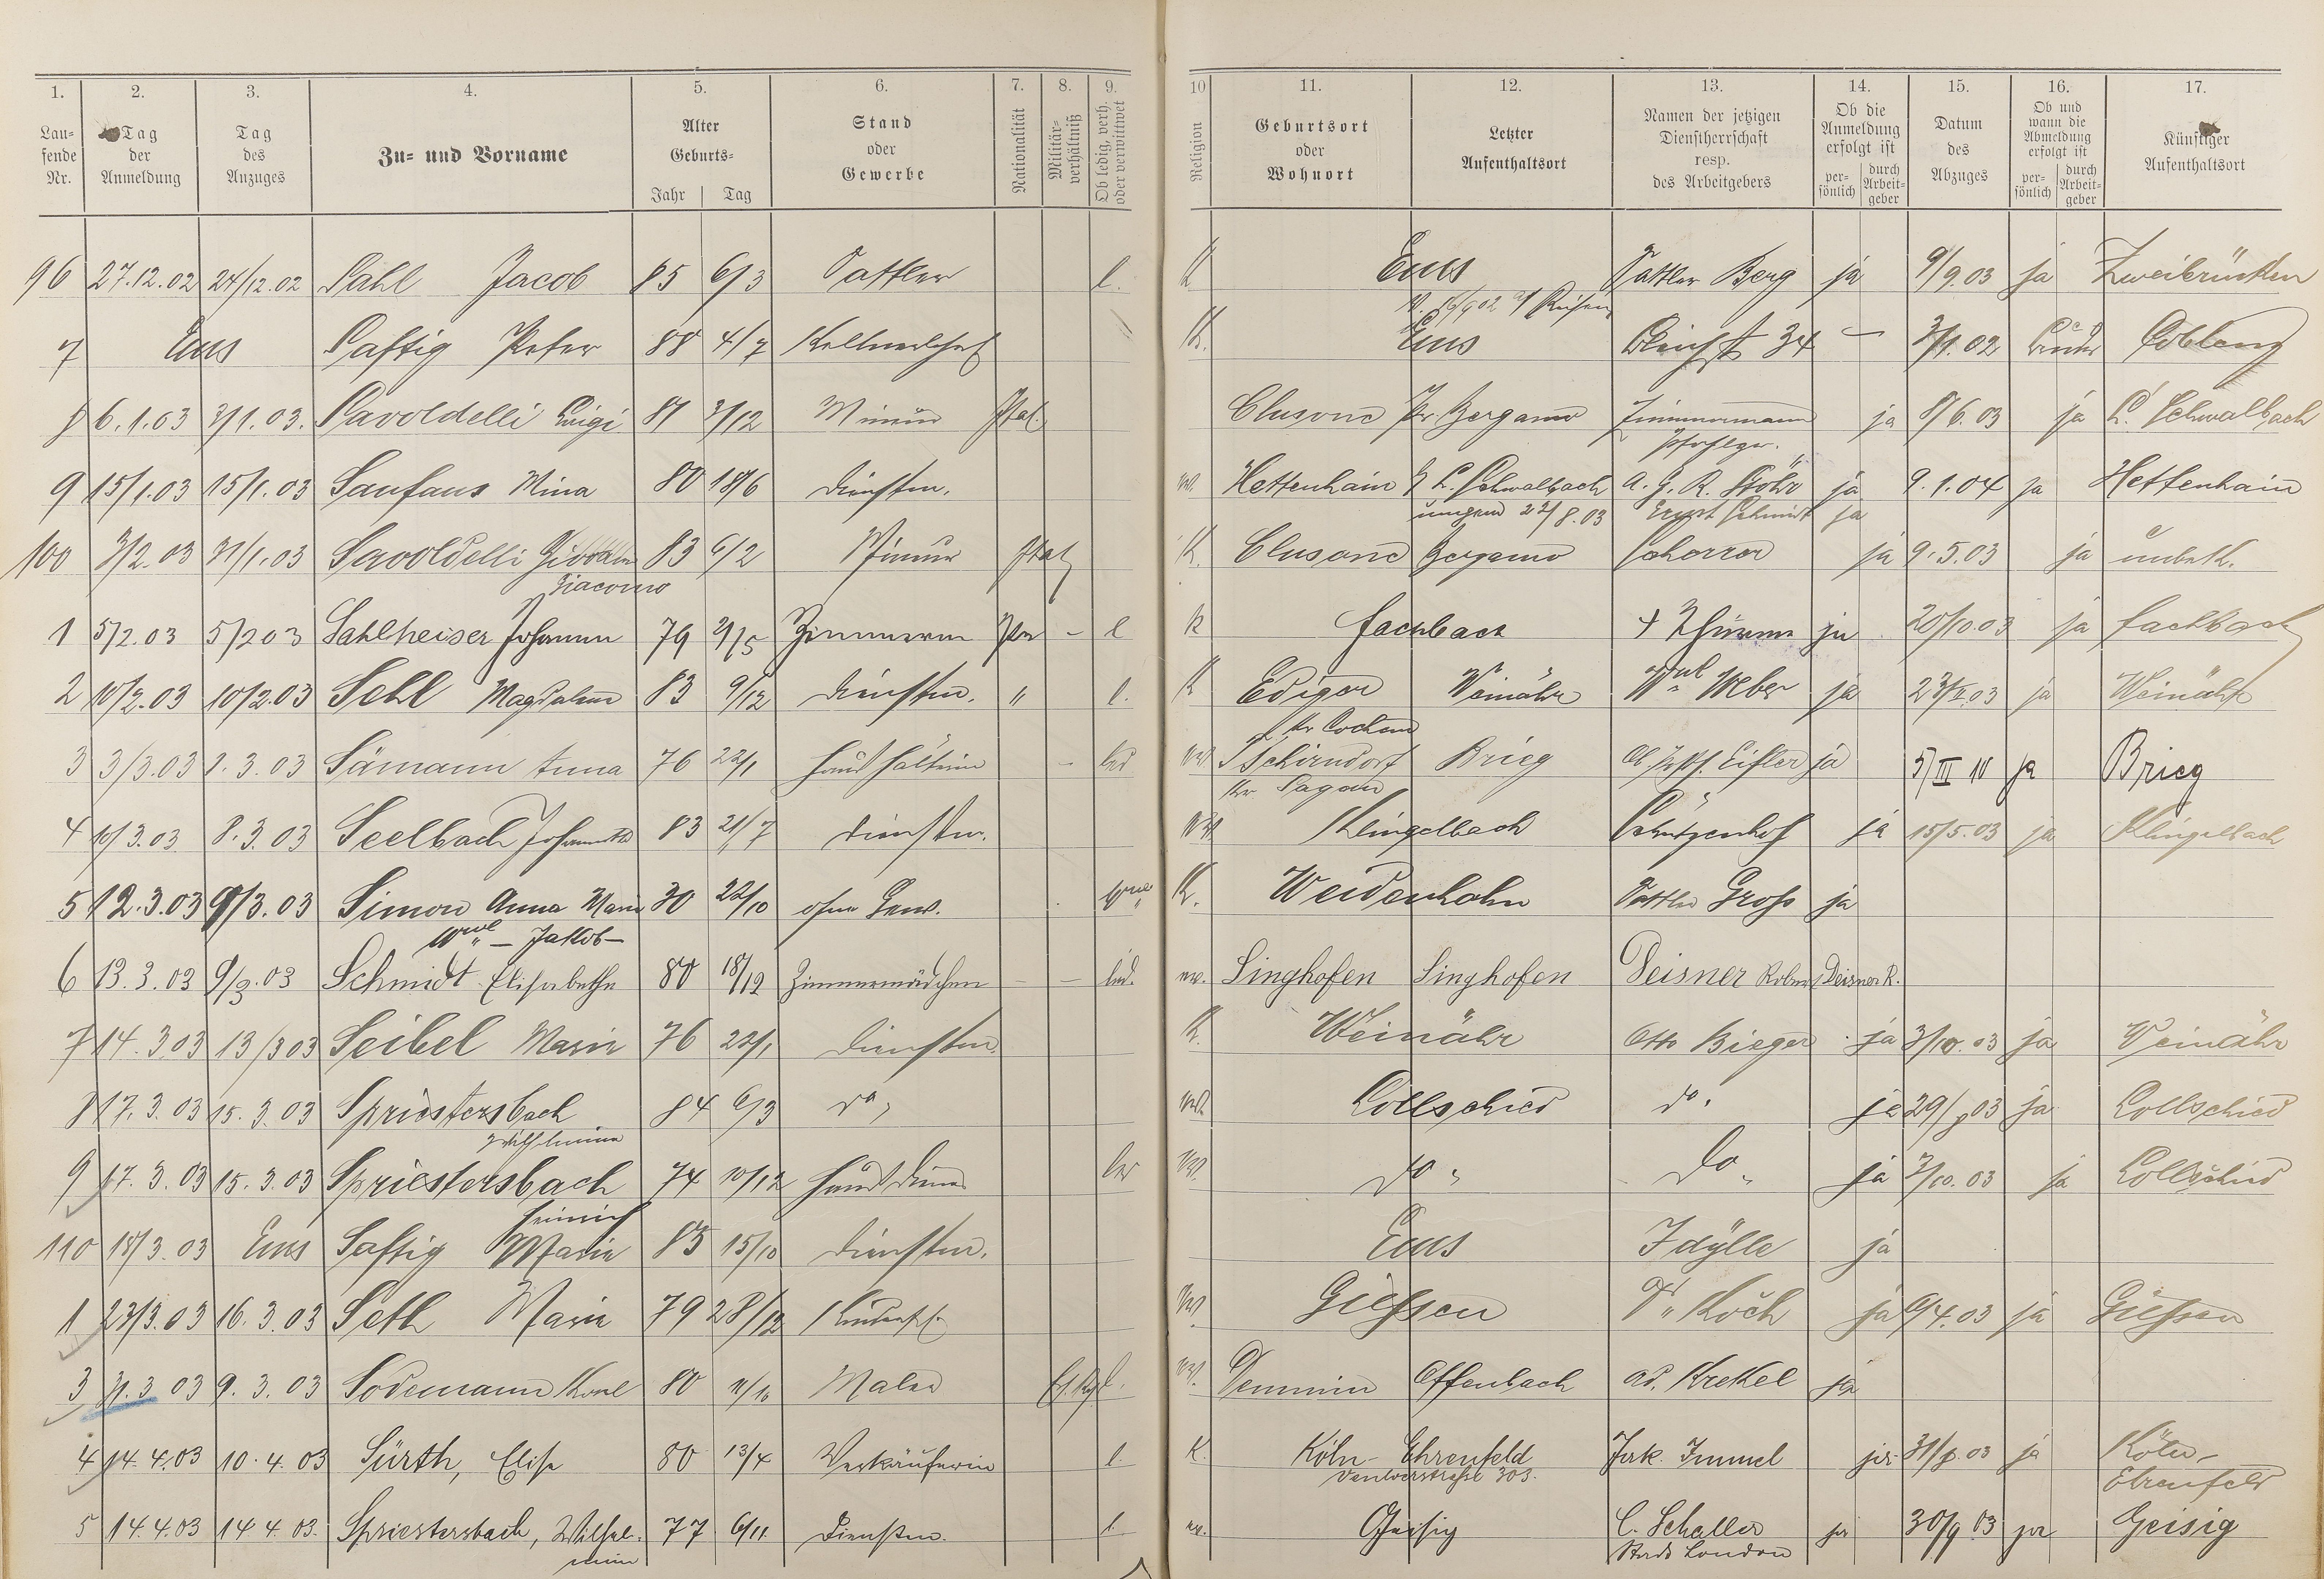 1. 2. 3. 4. 5. 6. 7. 8. 9. 10 11. 12. 13. 14. 15. 16. 17.
Lau-
fende
Nr.
Tag
der
Anmeldung
Tag
des
Anzuges
Zu- und Vorname
Alter
Geburts-
Jahr Tag
Stand
oder
Gewerbe
Nationalität
Militär-
verhältniß
Ob ledig, verh.
oder verwittwet
Religion
Geburtsort
oder
Wohnort
Letzter
Aufenthaltsort
Namen der jetzigen
Dienstherrschaft
resp.
des Arbeitgebers
Ob die
Anmeldung
erfolgt ist
per-
sönlich
durch
Arbeit-
geber
Datum
des
Abzuges
Ob und
wann die
Abmeldung
erfolgt ist
per-
sönlich
durch
Arbeit-
geber
Künftiger
Aufenthaltsort
96 27.12.02 24/12.02 Sahl Jacob 85 6/3 Sattler l. K Ems Sattler Berg ja 9/9.03 ja Zweibrücken
7 Ems Saftig Peter 88 4/7 K. Ems 34 – 02 Coblenz
8 6.1.03 3/1.03. Savoldelli Luigi 81 3/12 Mineur Ital. Clusone Pr. Bergamo Zimmermann ja 8/6.03 ja L. Schwalbach
9 15/1.03 15/1.03 Saufaus Mina 80 18/6 Dienstm. Hettenhain L. Schwalbach A. G. R. Stöhr ja 9.1.04 ja Hettenhain
22/8.03 Schmidt ja
100 3/2.03 31/1.03 Savoldelli 83 6/2 Mineur Ital. K. Clusone Bergamo Schorror ja 9.5.03 ja unbek.
Giacomo
1 5/2.03 5/2 03 Sahlheiser Johann 79 2/5 Zimmerm Pr – l K Fachbach ja 20/10.03 ja Fachbach
2 10/2.03 10/2.03 Sehl Magdalena 83 9/12 Dienstm. " l. K Ediger Weinähr Weber ja 03 ja Weinähr
Kr Cochem
3 3/3.03 2.3.03 Sämann Anna 76 22/1 Haushälterin – led Tschirndorf Brieg Eifler ja 5/III 10 ja Brieg
Kr Sagan
4 10/3.03 8.3.03 Seelbach 83 21/7 Dienstm. Klingelbach Schützenhof ja 15/5.03 ja Klingelbach
5 12.3.03 9/3.03 Simon Anna Maria 30 22/10 ohne Gew. Wwe K. Weidenhahn Sattler Groß ja
Wwe – Jakob –
6 13.3.03 9/3.03 Schmidt Elisabethe 80 18/12 Zimmermädchen – – led. ev. Singhofen Singhofen Deisner Robert Deisner R.
7 14.3 03 13/3 03 Seibel Marie 76 22/1 Dienstm. K. Weinähr Otto Bieger ja 3/10.03 ja Weinähr
8 17.3.03 15.3.03 Spriestersbach 84 6/3 do. ev. Lollschied do. ja 29/ 03 ja Lollschied
Wilhelmine
9 17.3.03 15.3.03 Spriestersbach 74 10/12 Hausdiener led ev. do. Do. ja 3/10.03 ja Lollschied
Heinrich
110 18/3.03 Ems Saftig Marie 85 15/10 Dienstm. Ems Idylle ja
1 23/3.03 16.3.03 Seth Marie 79 28/12 ev. Gießen Dr. Koch ja 6/4.03 ja Gießen
3 31.3 03 9.3.03 Sodemann Karl 80 11/10 Maler l. ev. Demmin Offenbach Ad. Krekel ja
4 14.4.03 10.4.03 Sürth, Elise 80 13/4 Verkäuferin l. K. Köln-Ehrenfeld Jak. Immel ja 03 ja Köln-
Venloerstraße 303. Ehrenfeld
5 14.4.03 14.4.03. Spriestersbach, Wilhel- 77 6/11. Dienstm. l. ev. Geisig C. Schaller ja 30/9.03 ja Geisig
mine Stadt London